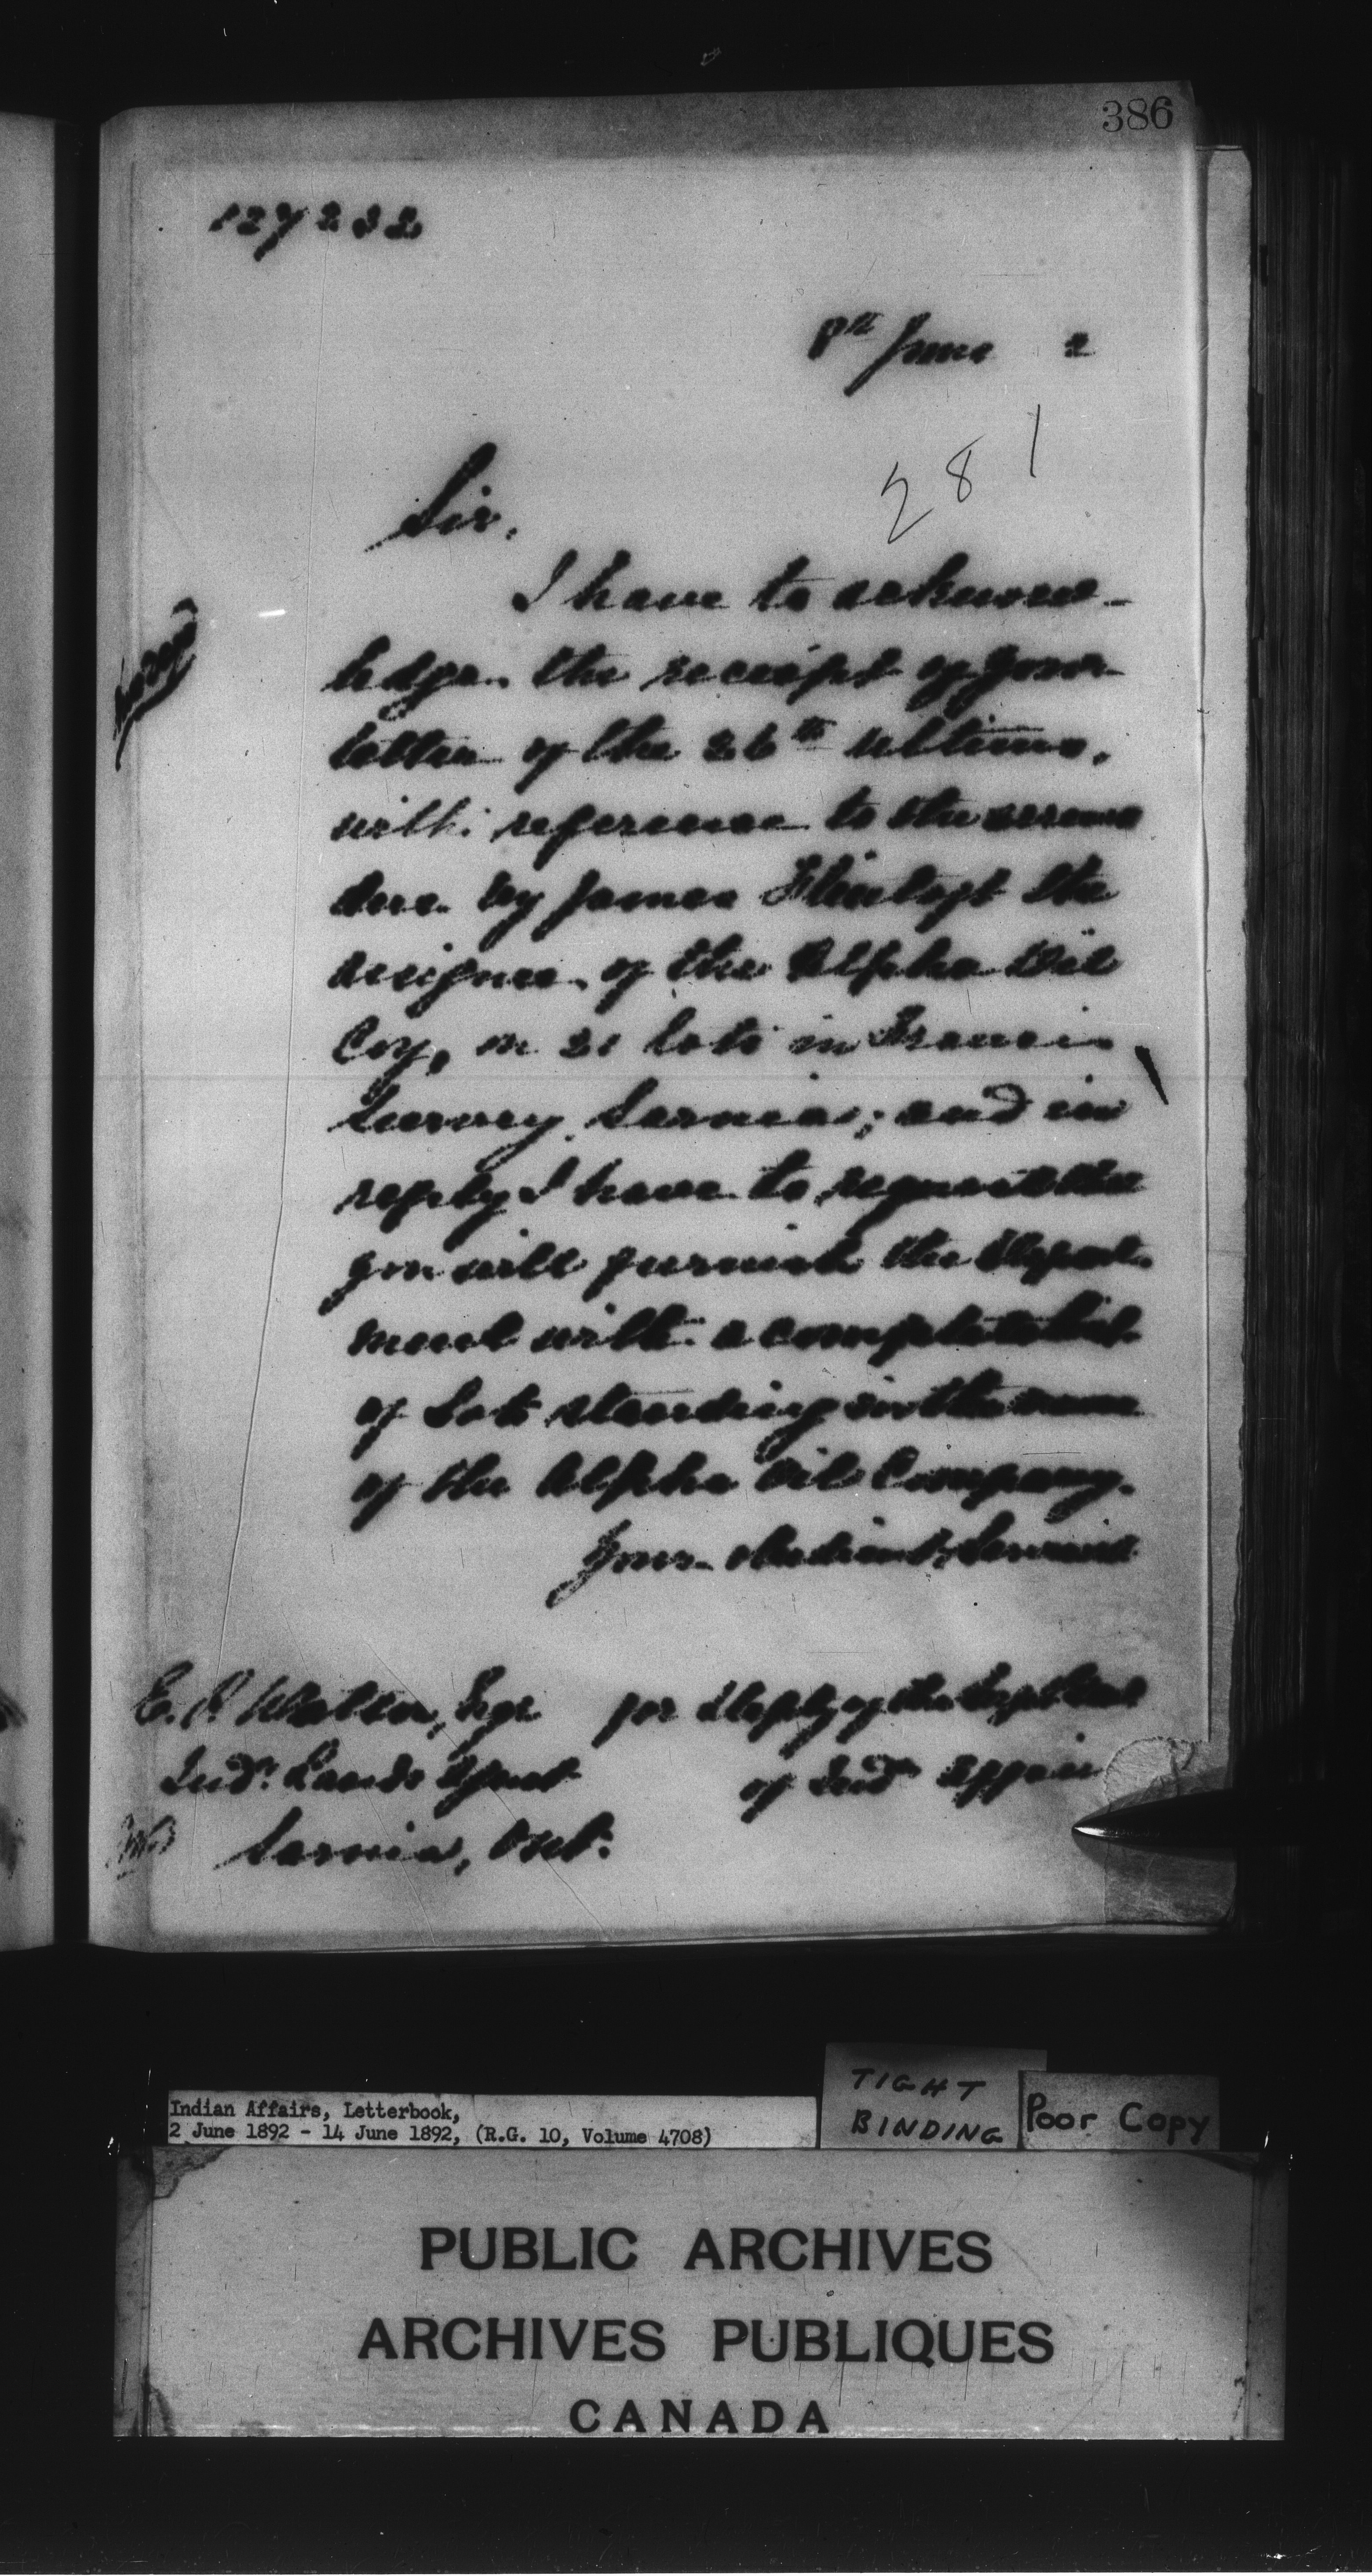 386
127232
8th June 2
281
Sir,
I have to acknow-
ledge the receipt of your
letter of the 26th ultimo,
with reference to the arrears
due by James Flintoft the
assignee of the Alpha Oil
Coy, on 21 lots in Francis
Survey Sarnia; and in
reply I have to request that
you will furnish the Depart-
ment with a complete list
of Lots standing in the name
of the Alpha Oil Company.
Your obedient Servant
E. Watson, Esqr
for Deputy of the Supt Genl
Indn. Lands Agent
of Indn Affairs
Sarnia, Ont.
Indian Affairs, Letterbook,
2 June 1892 - 14 June 1892, (R.G. 10, Volume 4708)
TIGHT
BINDING
Poor Copy
PUBLIC ARCHIVES
ARCHIVES PUBLIQUES
CANADA